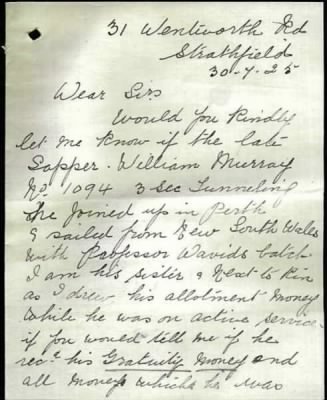 31 Wentworth Rd
Strathfield
30-7-25
Dear Sirs
Would you kindly
let me know if the late
Sapper. William Murray
No 1094 3 Sec Tunneling
He Joined up in Perth
& sailed from New South Wales
with Professor Davids batch
I am his sister & Next to Kin
as I drew his allotment money
while he was on active service
if you would tell me if he
recd his Gratuity Money and
all money which he was